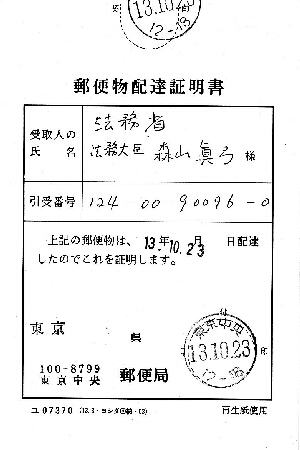 13.10.23
12-18
郵便物配達証明書
受取人の
氏名
法務省
法務大臣 森山眞弓 様
引受番号 124 00 90096-0
上記の郵便物は、13年10.23月 日配達
したのでこれを証明します。
東京 県
100-8799
東京中央 郵便局
東京中央
13.10.23
12-18
ユ07370
再生紙使用